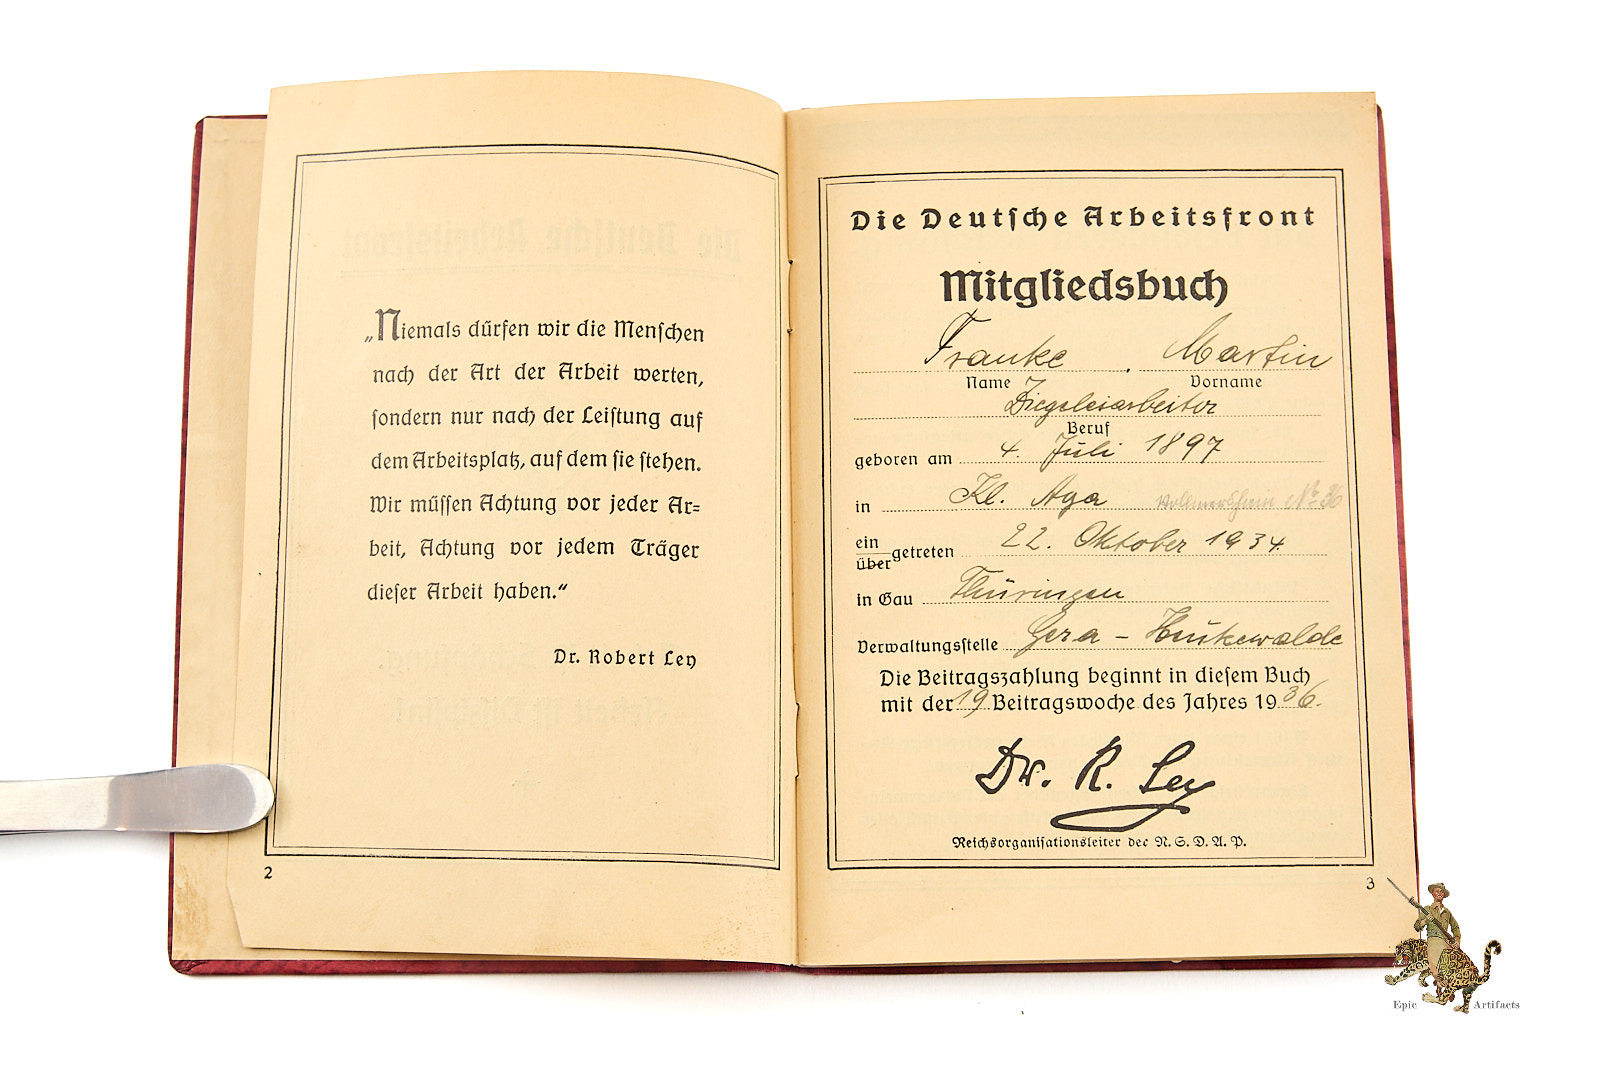 „Niemals dürfen wir die Menschen
nach der Art der Arbeit werten,
sondern nur nach der Leistung auf
dem Arbeitsplatz, auf dem sie stehen.
Wir müssen Achtung vor jeder Ar=
beit, Achtung vor jedem Träger
dieser Arbeit haben.“
Dr. Robert Ley
2
Die Deutsche Arbeitsfront
Mitgliedsbuch
Franke, Martin
Name Vorname
Ziegeleiarbeiter
Beruf
geboren am 4. Juli 1897
in Kl. Aga
ein
übergetreten 22. Oktober 1934
in Gau Thüringen
Verwaltungsstelle Gera -
Die Beitragszahlung beginnt in diesem Buch
mit der 19 Beitragswoche des Jahres 1936.
Dr. R. Ley
Reichsorganisationsleiter der N. S. D. A. P.
3
Epic Artifacts